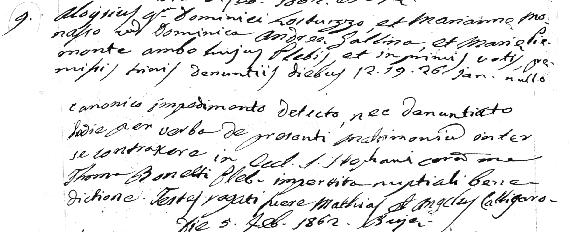 9. Aloysius q.m Dominici et Marianna Mo-
nasso cum Dominica Andrea Gallina, et Maria Pie-
monte ambo hujus Plebis, et in primis votis, pre-
missis trinis denuntiis diebus 12. 19. 26 Jan. nullo
canonico impedimento detecto, nec denuntiato
hodie per verba de presenti matrimonium inter
se contraxere in Eccl. S. Stephani coram me
Thoma Bonetti Pleb. impertita nuptiali bene-
dictione. Testes rogati fuere Mathias et Angelus Calligaro.
die 5. Feb. 1862. Buja.